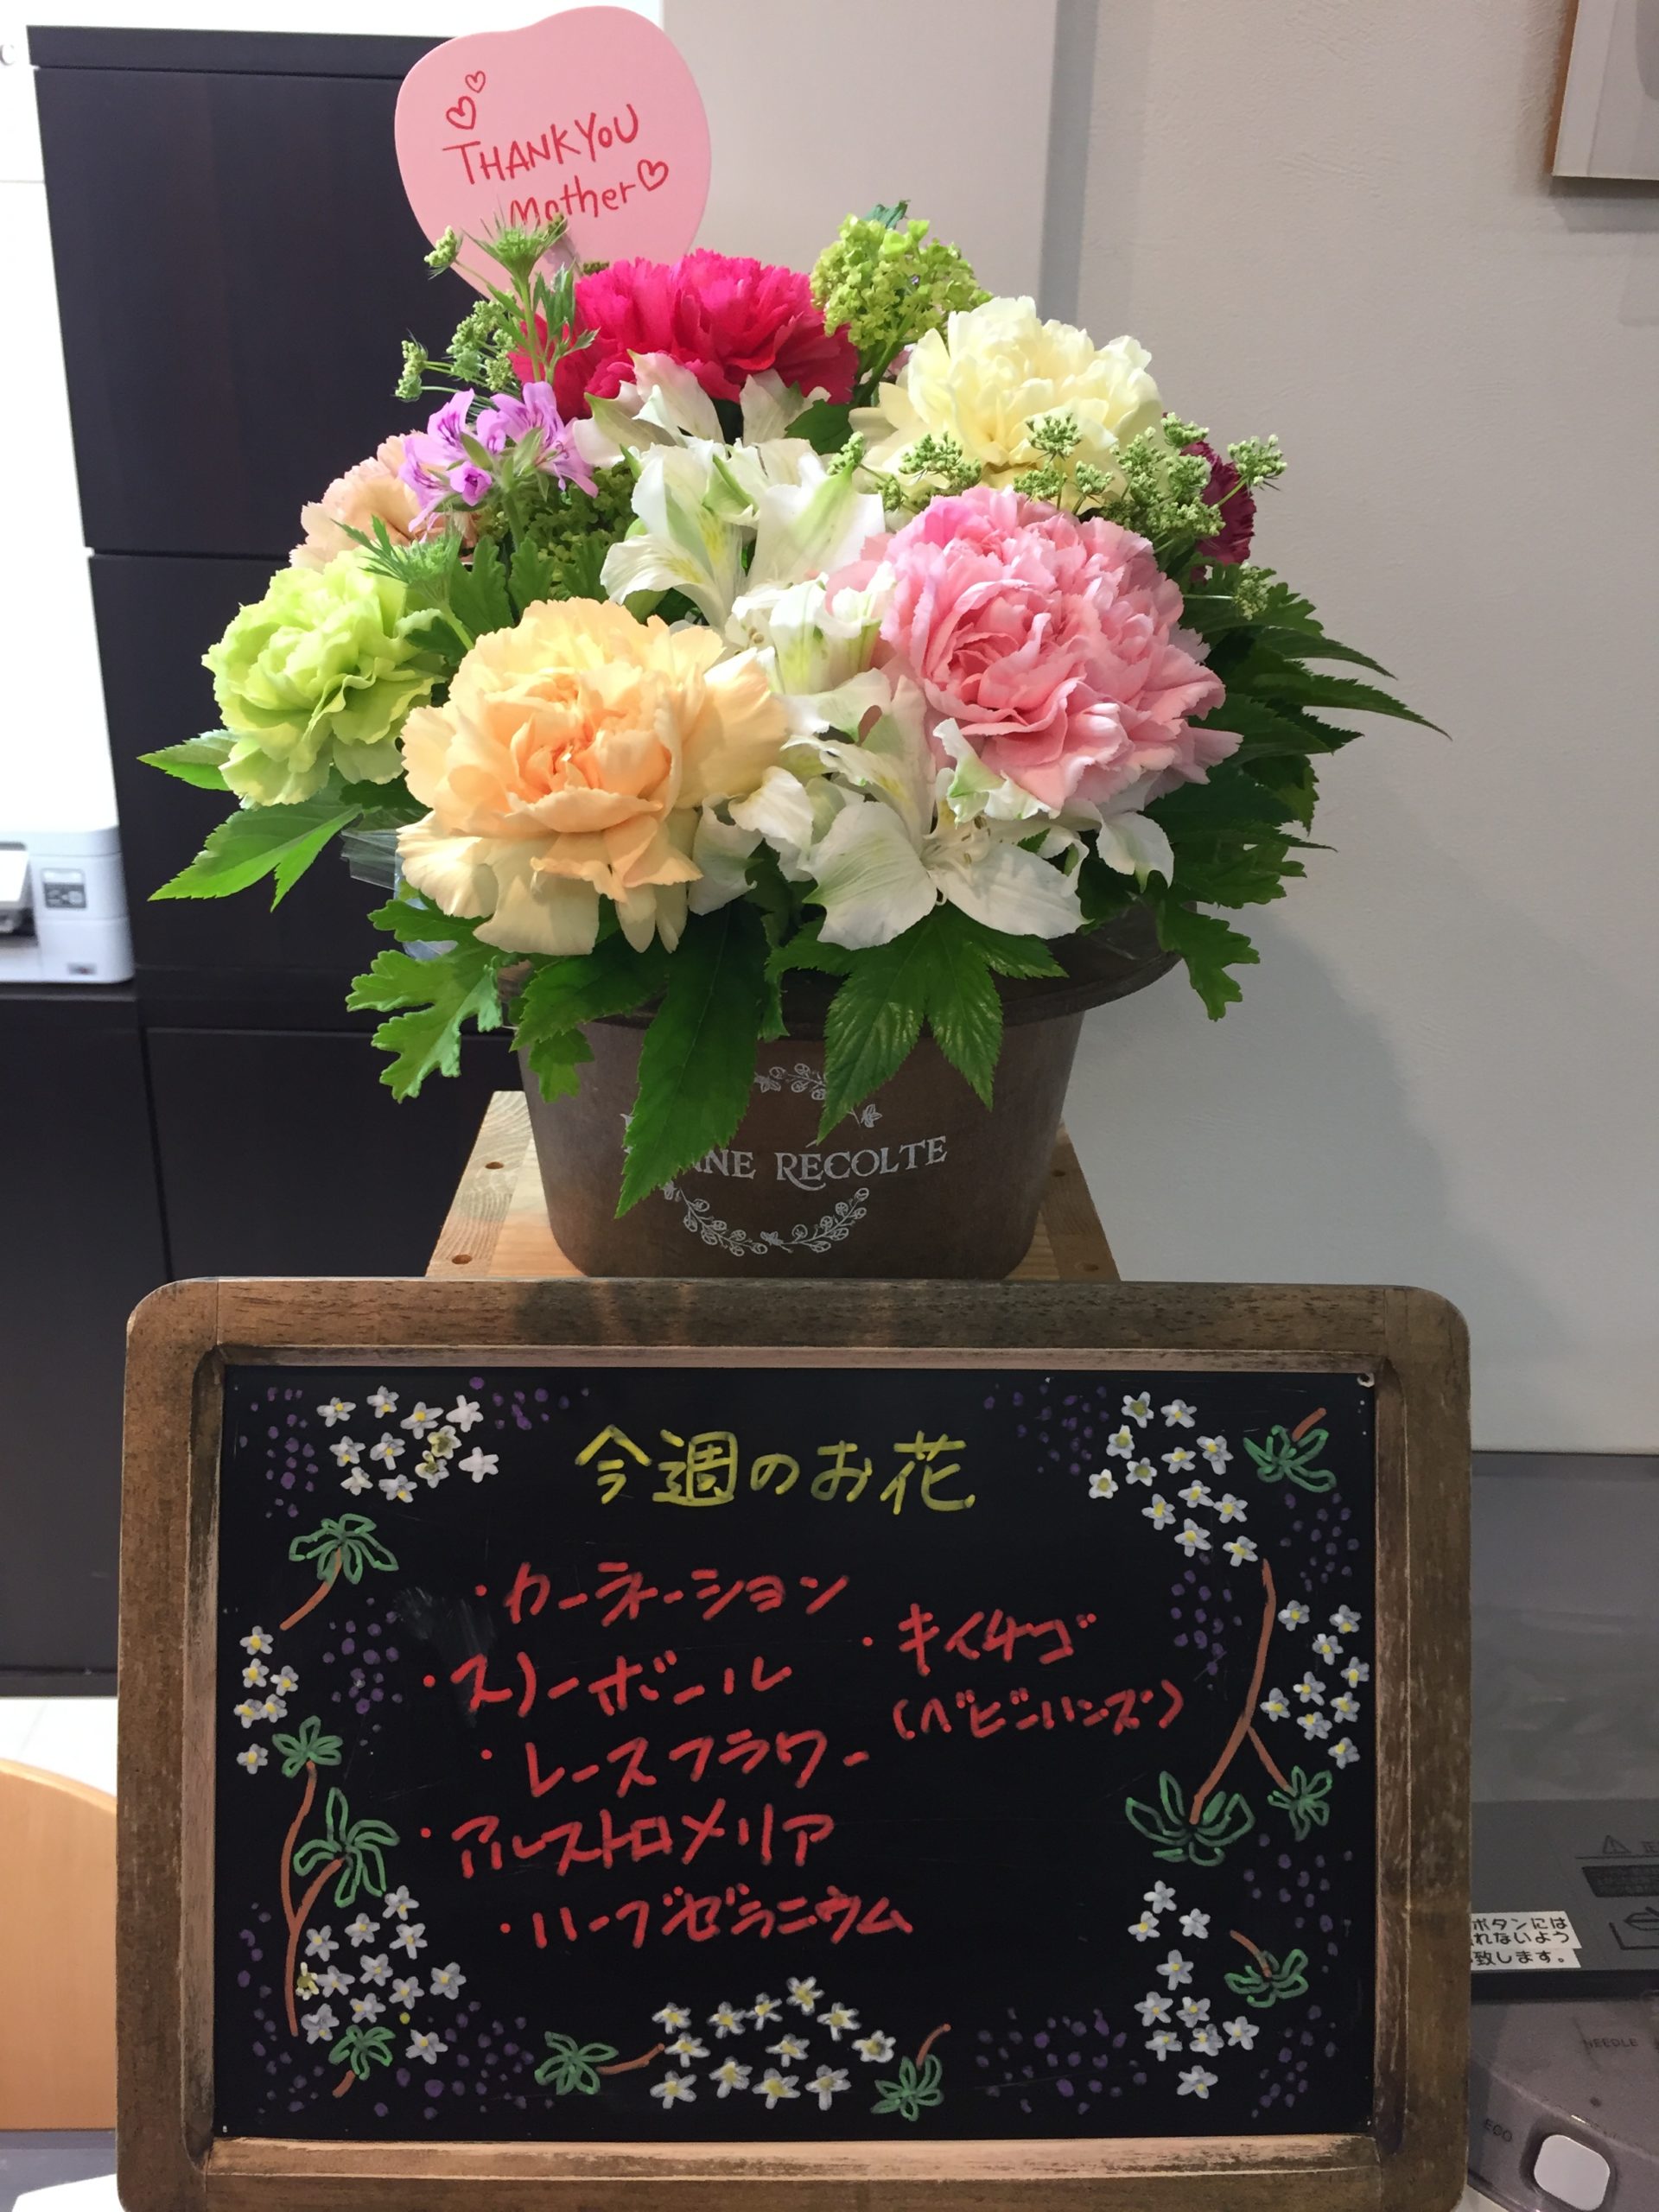 THANK YOU
Mother
RECOLTE
今週のお花
・カーネーション
・スノーボール
・キイチゴ
（ベビーハンズ）
・レースフラワー
・アルストロメリア
・ハーブゼラニウム
ボタンには
れないよう
致します。
NEEDLE
ECO